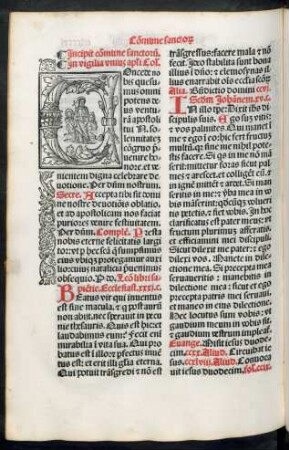 Cõmune sanctoꝝ
Incipit cõmune sanctorũ.
In vigilia vnius apl̃i Col̃.
COncede nobis
quesumus omnipotens
deus ventura
apostoli
tui N. solennitatẽ
nienatem digna celebrare deuotione.
Per dñm nostrum.
Secre. Accepta tibi sit domine
nostre deuotiõis oblatio,
et ad apostolicam nos faciat
puriores venire festiuitatem.
Per dñm. Complẽ.
obsequio. P. d. Lcõ libri sapiẽtie.
Ecclesiast. xxxi. c.
BEatus vir qui inuentus
est sine macula, et q̃ post aurũ
non abijt, nec sperauit in pecunie
thesauris. Quis est hic et
laudabimus eum? fecit enim
mirabilia ĩ vita sua. Qui probatus
est ĩ illo et perfectus inuentus
est: et erit illi gl̃ia eterna.
Qui potuit trãsgredi et nõ est
trãsgressus: facere mala et nõ
fecit. Ideo stabilita sunt bona
illius ĩ dño: et elemosynas illius
enarrabit oĩs ecclesia scõꝝ.
Scđm Johãnem. xv. c.
IN illo tp̃e: Dixit iħs discipulis
suis. Ego suz vitis:
vos palmites. Qui manet ĩ
me et ego ĩ eo: hic fert fructũ
multũ. q̃ sine me nihil potestis
facere. Si q̃s in me nõ
manserit, mittetur foras sicut
palmes et arescet: et colligẽt eũ et
in ignẽ mittẽt et ardet. Si mãseritis
in me et verba mea in vobis
mãserit: q̃dcũq̃ volueritis
petetis, et fiet vobis. In hoc
clarificatus est pater meus, vt
fructum plurimum afferatis
et efficiamini mei discipuli.
Sicut dilexit me pater: et ego
dilexi vos. Manete in dilectione
mea. Si precepta mea
seruaueritis: manebitis in
dilectione mea, sicut et ego
precepta patris mei seruaui,
et maneo in eius dilectione.
Hec locutus sum vobis: vt
gaudium meum in vobis sit:
et gaudium vestrum impleat̃.
Euange. Misit iesus duodecim.
ccxx. Aliud. Circuibat iesus.
ccxlviii. Aliud. Conuocauit
iesus duodecim. fol. ccix.